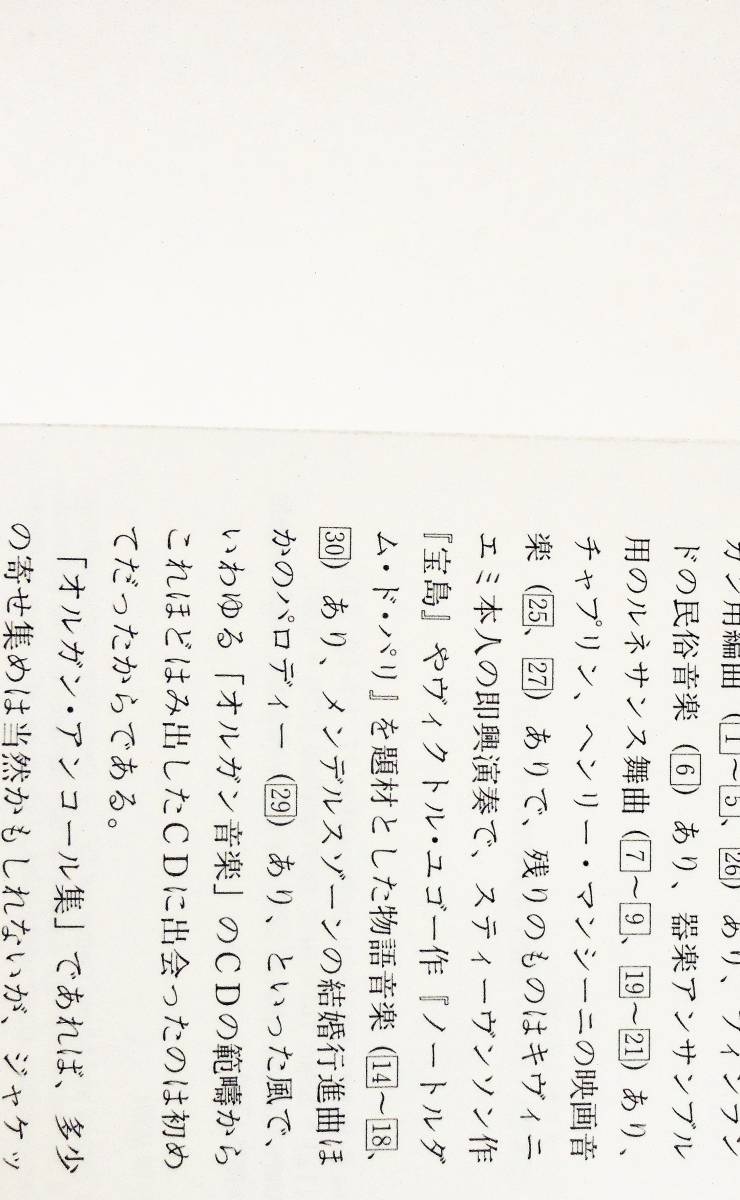 ガン用編曲（1～5、26）あり、フィンラン
ドの民俗音楽（6）あり、器楽アンサンブル
用のルネサンス舞曲（7～9、19～21）あり、
チャプリン、ヘンリー・マンシーニの映画音
楽（25、27）ありで、残りのものはキヴィニ
エミ本人の即興演奏で、スティーヴンソン作
『宝島』やヴィクトル・ユゴー作『ノートルダ
ム・ド・パリ』を題材とした物語音楽（14～18、
30）あり、メンデルスゾーンの結婚行進曲ほ
かのパロディー（29）あり、といった風で、
いわゆる「オルガン音楽」のCDの範疇から
これほどはみ出したCDに出会ったのは初め
てだったからである。
「オルガン・アンコール集」であれば、多少
の寄せ集めは当然かもしれないが、ジャケッ